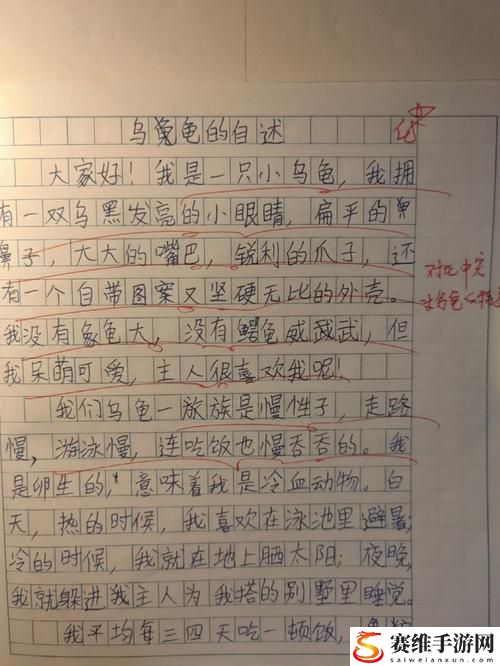 乌龟的自述
优
大家好!我是一只小乌龟,我拥
有一双乌黑发亮的小眼睛,扁平的
鼻子,大大的嘴巴,锐利的爪子,还
有一个自带图案又坚硬无比的外壳。
对比中突
我没有象龟大,没有鳄龟威武,但
我呆萌可爱,主人很喜欢我呢!
我们乌龟一族是慢性子,走路
慢,游泳慢,连吃饭也慢吞吞的。我
是卵生的,意味着我是冷血动物。白
天,热的时候,我喜欢在泳池里避暑;
冷的时候,我就在地上晒太阳;夜晚,
我就躲进我主人为我搭的别墅里睡觉。
我平均每三四天吃一顿饭,
赛维手游网
saiweianxun.com